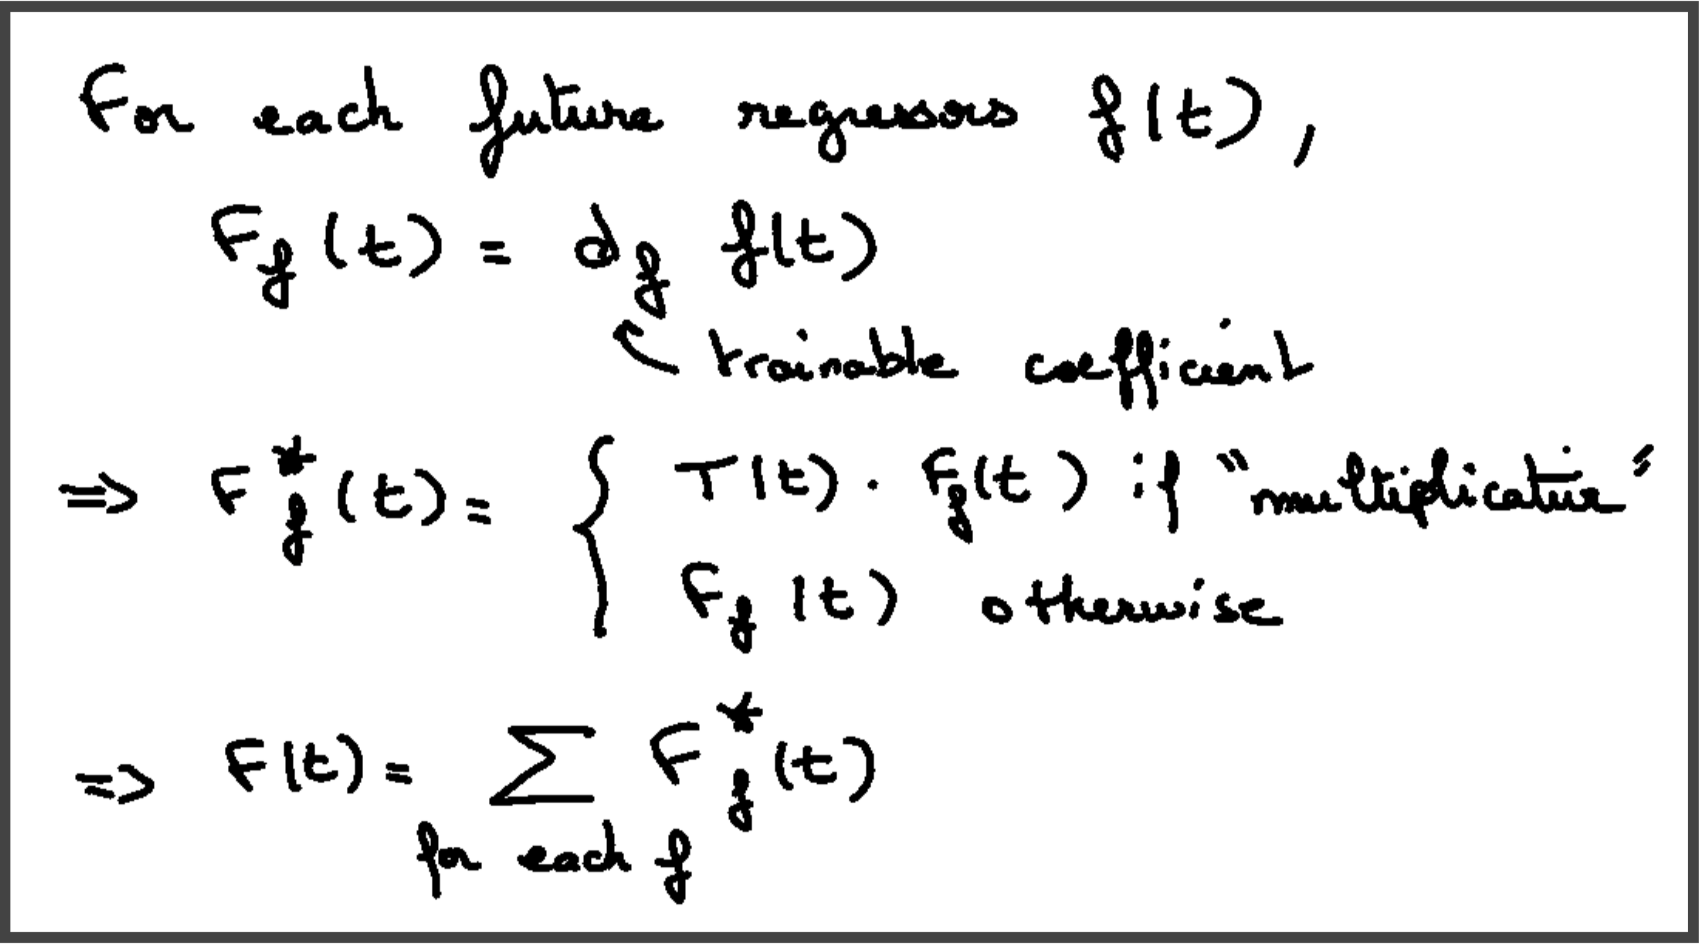 For each future regressors f(t),
F_f(t) = d_f f(t)
trainable coefficient
=> F*_f(t) = { T(t) · F_f(t) if "multiplicative"
F_f(t) otherwise
=> F(t) = Σ F*_f(t)
for each f